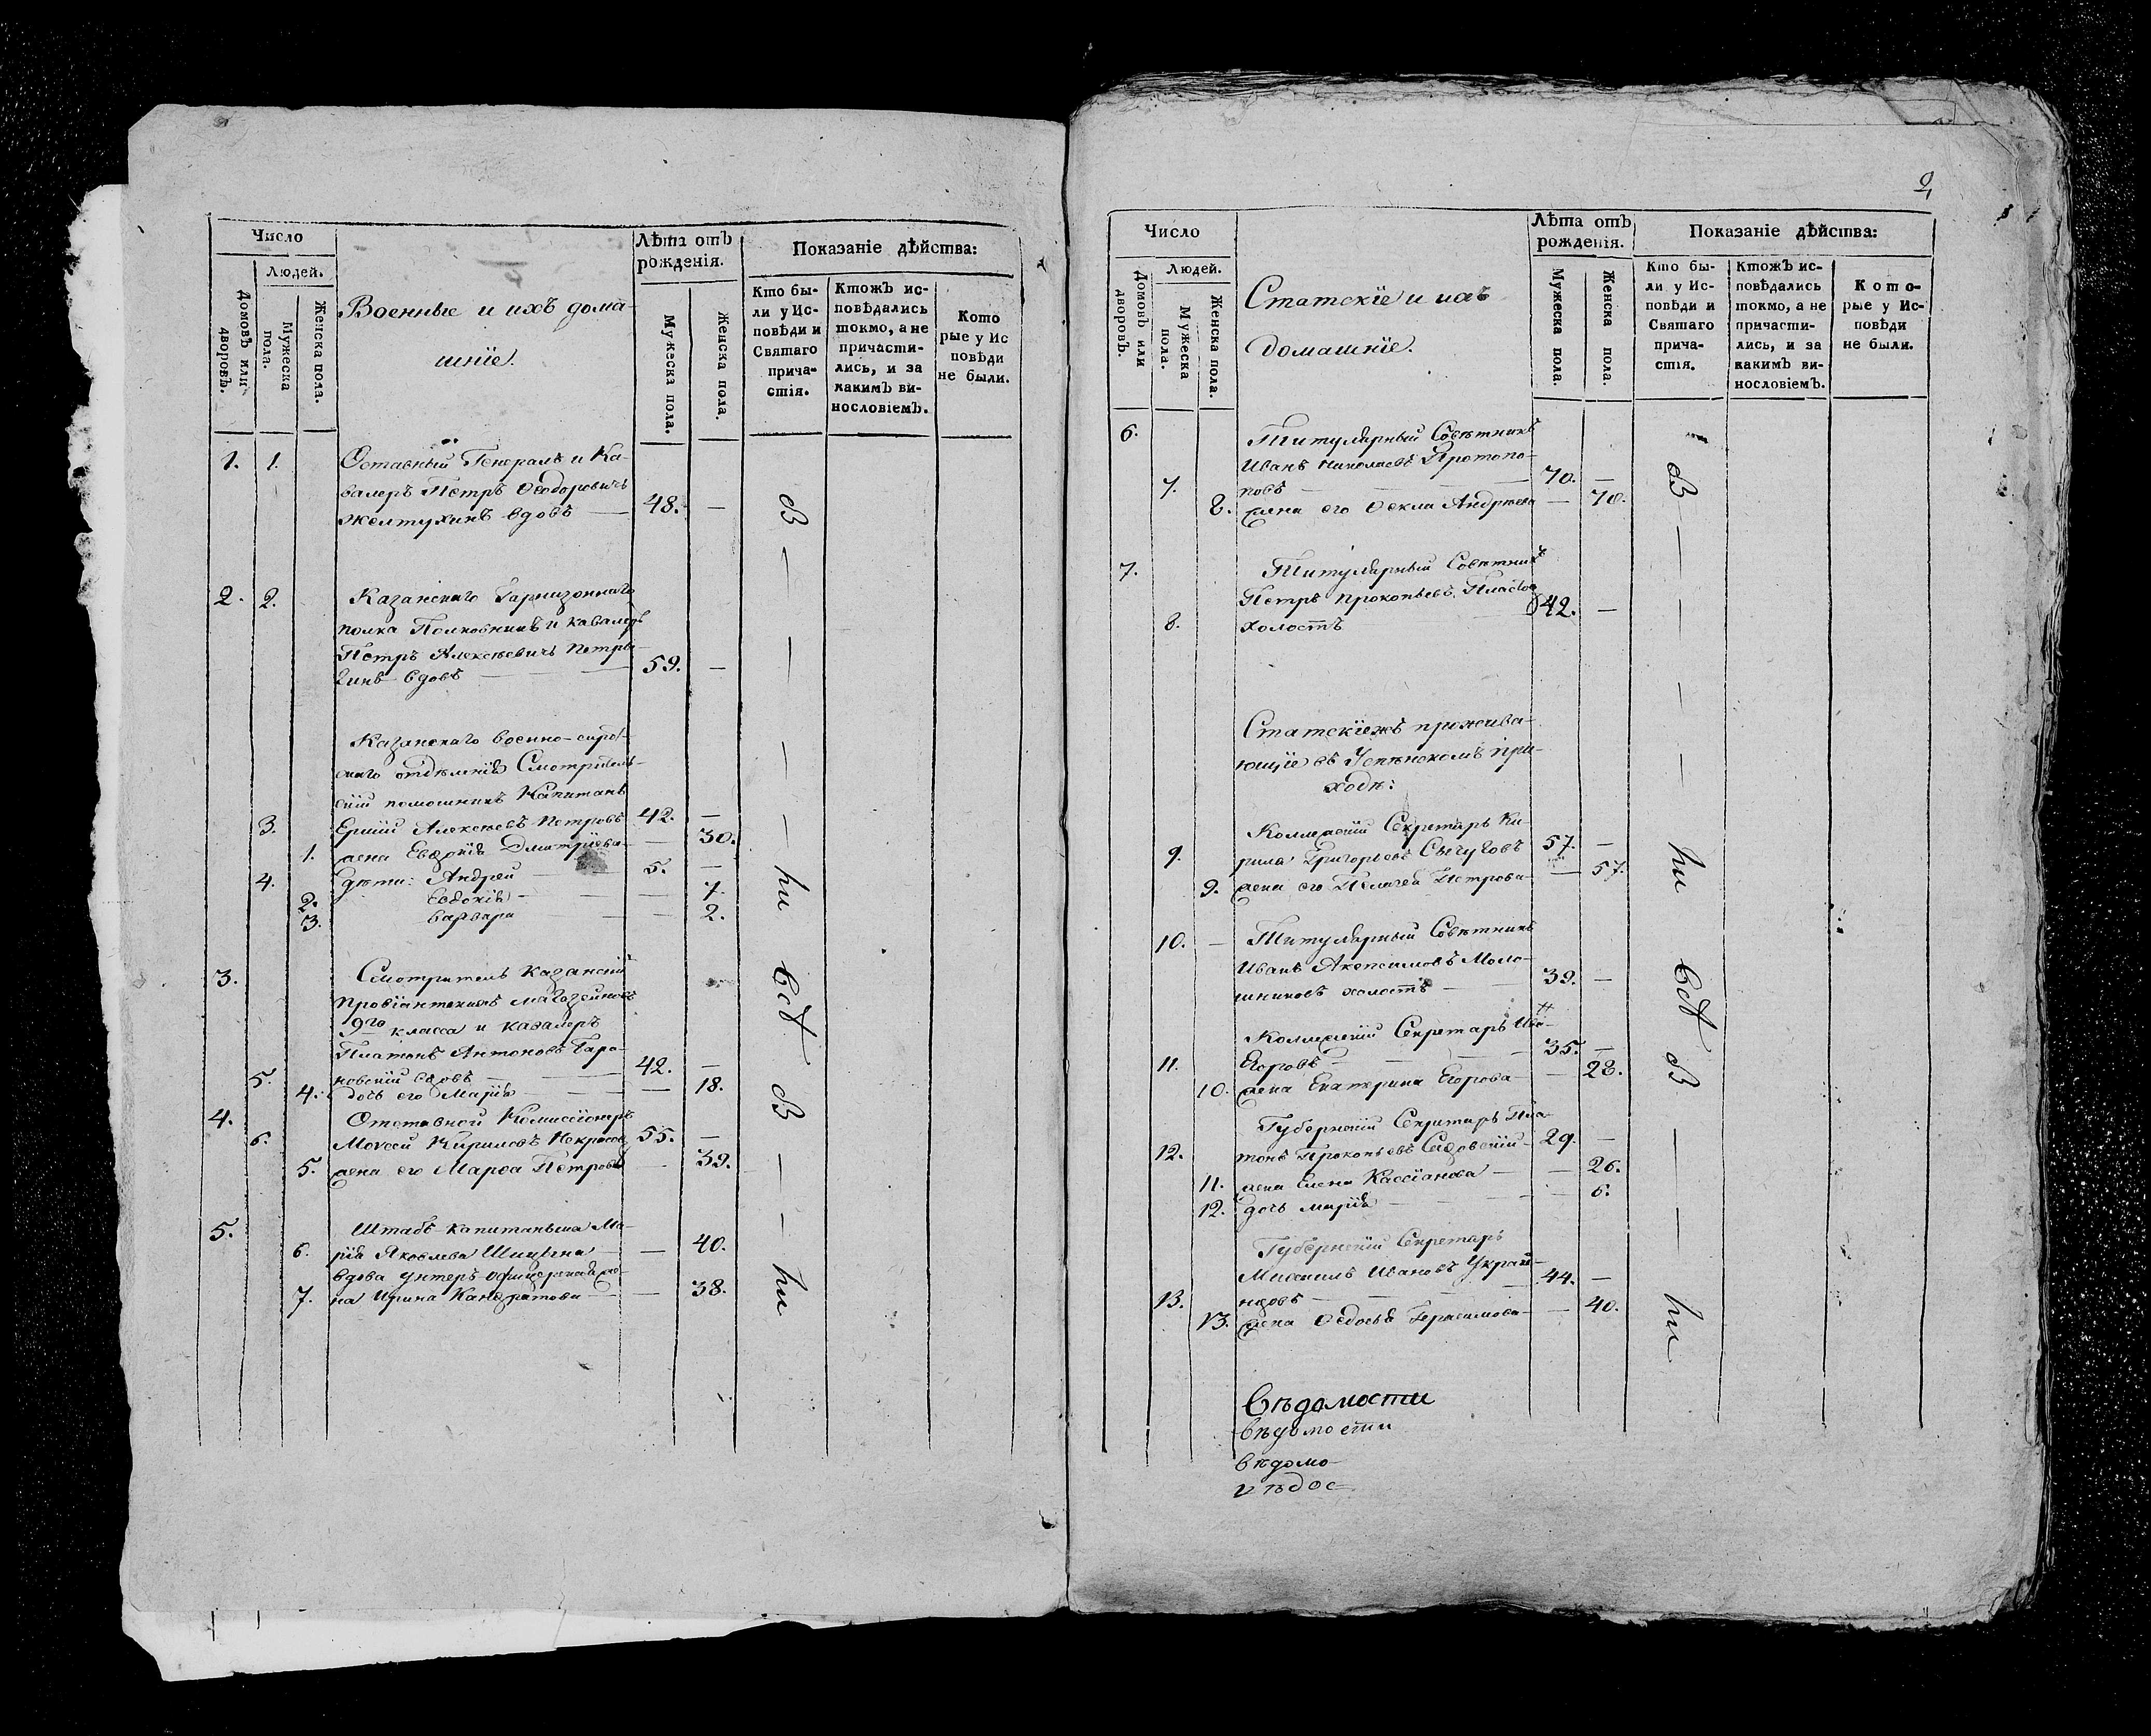 Число
Людей.
Домовъ или дворовъ.
Мужеска пола.
Женска пола.
Военные и ихъ дома-
шніе.
Лѣта отъ рожденія.
Мужеска пола.
Женска пола.
Показаніе дѣйства:
Кто бы-
ли у Ис-
повѣди и
Святаго
прича-
стія.
Ктожъ ис-
повѣдались
токмо, а не
причасти-
лись, и за
какимъ ви-
нословіемъ.
Кото
рые у Ис
повѣди
не были.
1. 1. Оставный Генералъ и Ка-
валеръ Петръ Ѳеодоровичъ
Желтухинъ вдовъ — 48. —
2. 2. Казанскаго Гарнизоннаго
полка Полковникъ и кавалеръ
Петръ Алексѣевичъ Петры-
гинъ вдовъ — 59. —
Казанскаго военно-сирот-
скаго отдѣленія Смотритель-
скій помошникъ Капитанъ
3. Ермій Алексѣевъ Петровъ 42. —
1. жена Евдокія Дмитріева — 30.
4. дѣти: Андрей — 5. —
2. Евдокія — 7.
3. Варвара — 2.
3. Смотритель Казанскій
провіантскихъ магазейновъ
9го класса и кавалеръ
Платонъ Антоновъ Гара-
5. новскій вдовъ — 42. —
4. дочь его Марія — 18.
4. Отставной Комиссіонеръ
6. Моѵсей Кириловъ Некрасовъ 55. —
5. жена его Марѳа Петрова — 39.
5. Штабъ-капитанша Ма-
6. рія Яковлева — 40.
вдова унтеръ-офицерская же-
7. на Ирина Кандратова — 38.
въ
ни
всѣ
въ
ни
2
Число
Людей.
Домовъ или дворовъ.
Мужеска пола.
Женска пола.
Статскіе и ихъ
домашніе.
Лѣта отъ
рожденія.
Мужеска пола.
Женска пола.
Показаніе дѣйства:
Кто бы-
ли у Ис-
повѣди и
Святаго
прича-
стія.
Ктожъ ис-
повѣдались
токмо, а не
причасти-
лись, и за
какимъ ви-
нословіемъ.
Кото-
рые у Ис-
повѣди
не были.
6. Титулярный Совѣтникъ
Иванъ Николаевъ Протопо-
7. повъ — 70. —
8. жена его Ѳекла Андреева — 70.
7. Титулярный Совѣтникъ
Петръ Прокопьевъ
8. холостъ 42. —
Статскіежъ прожива-
ющіе въ Успенскомъ при-
ходѣ:
Коллежскій Секретарь Ки-
9. рила Григорьевъ 57. —
9. жена его Пелагея Петрова — 57.
10. — Титулярный Совѣтникъ
Иванъ Акепсимовъ Моло-
шниковъ холостъ — 39. —
Коллежскій Секретарь Ива-
11. Егоровъ — 35. —
10. жена Екатерина Егорова — 28.
Губернскій Секретарь Пла-
12. тонъ Прокопьевъ Садовскій — 29. —
11. жена Елена Кассіанова — 26.
12. дочь Марія — 6.
Губернскій Секретарь
Михаилъ Ивановъ Украй-
13. нцовъ — 44. —
13. жена Ѳедосья Герасимова — 40.
въ
ни
всѣ
въ
ни
вѣдомости
вѣдомости
вѣдомо-